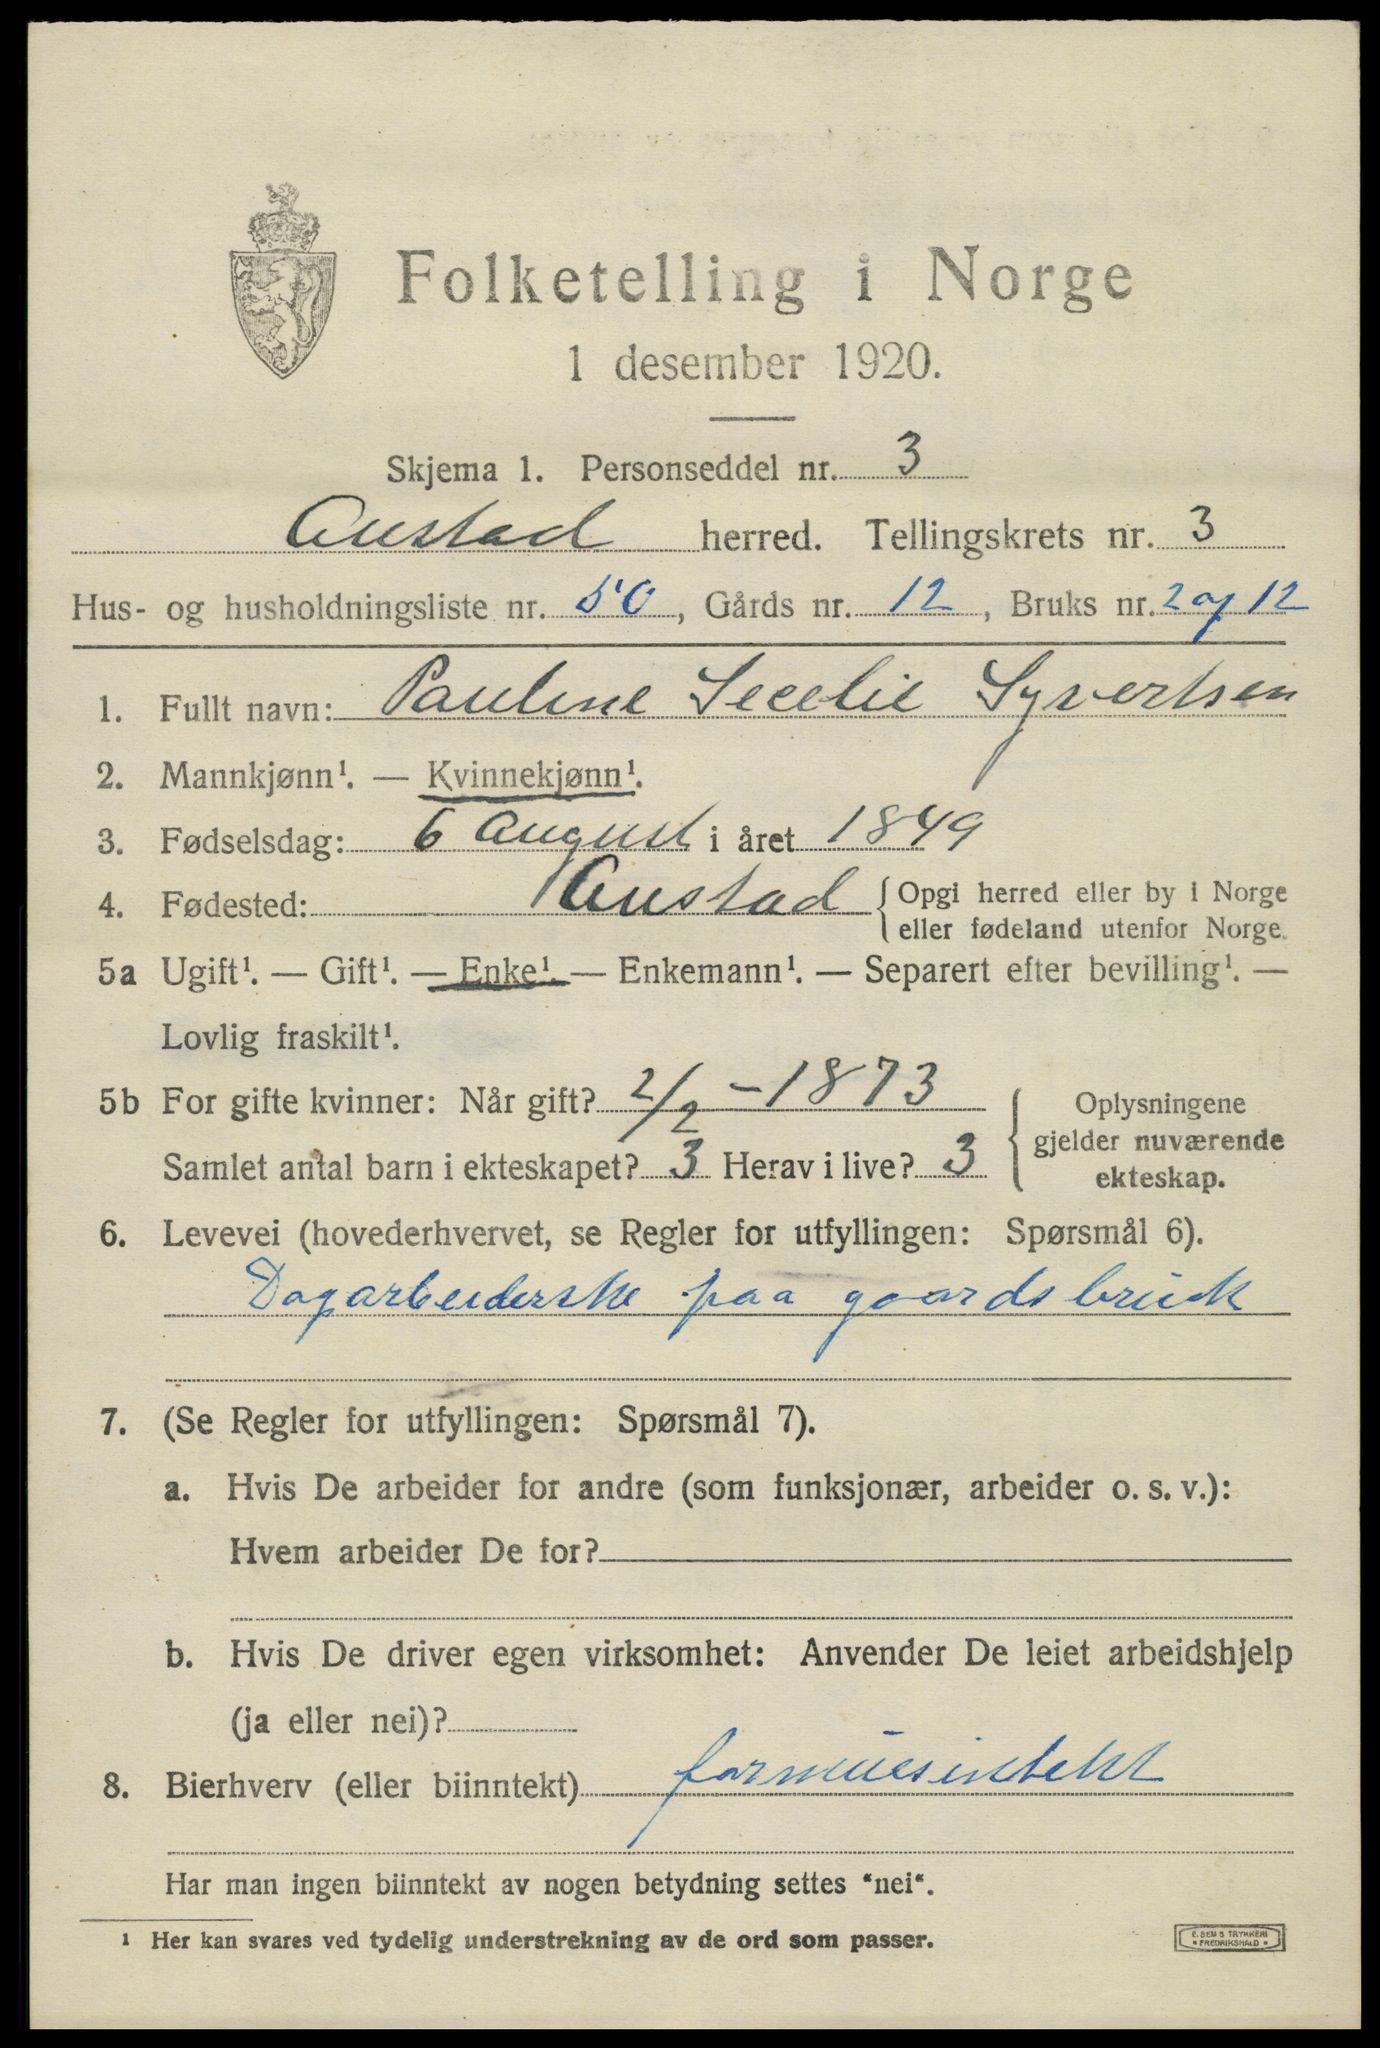 Folketelling i Norge
1 desember 1920.
Skjema 1. Personseddel nr. 3
Austad herred. Tellingskrets nr. 3
Hus- og husholdningsliste nr. 50, Gårds nr. 12, Bruks nr. 2 og 12
1. Fullt navn: Pauline Secelie Syvertsen
2. Mannkjønn¹. — Kvinnekjønn¹.
3. Fødselsdag: 6 August i året 1849
4. Fødested: Austad { Opgi herred eller by i Norge
eller fødeland utenfor Norge.
5a Ugift¹. — Gift¹. — Enke¹. — Enkemann¹. — Separert efter bevilling¹. —
Lovlig fraskilt¹.
5b For gifte kvinner: Når gift? 2/2 - 1873
Samlet antal barn i ekteskapet? 3 Herav i live? 3
Oplysningene
gjelder nuværende
ekteskap.
6. Levevei (hovederhvervet, se Regler for utfyllingen: Spørsmål 6).
Dagarbeiderske paa gaardsbruk
7. (Se Regler for utfyllingen: Spørsmål 7).
a. Hvis De arbeider for andre (som funksjonær, arbeider o. s. v.):
Hvem arbeider De for?
b. Hvis De driver egen virksomhet: Anvender De leiet arbeidshjelp
(ja eller nei)?
8. Bierhverv (eller biinntekt) formuesintekt
Har man ingen biinntekt av nogen betydning settes "nei".
¹ Her kan svares ved tydelig understrekning av de ord som passer.
E. SEM'S TRYKKERI
FREDRIKSHALD